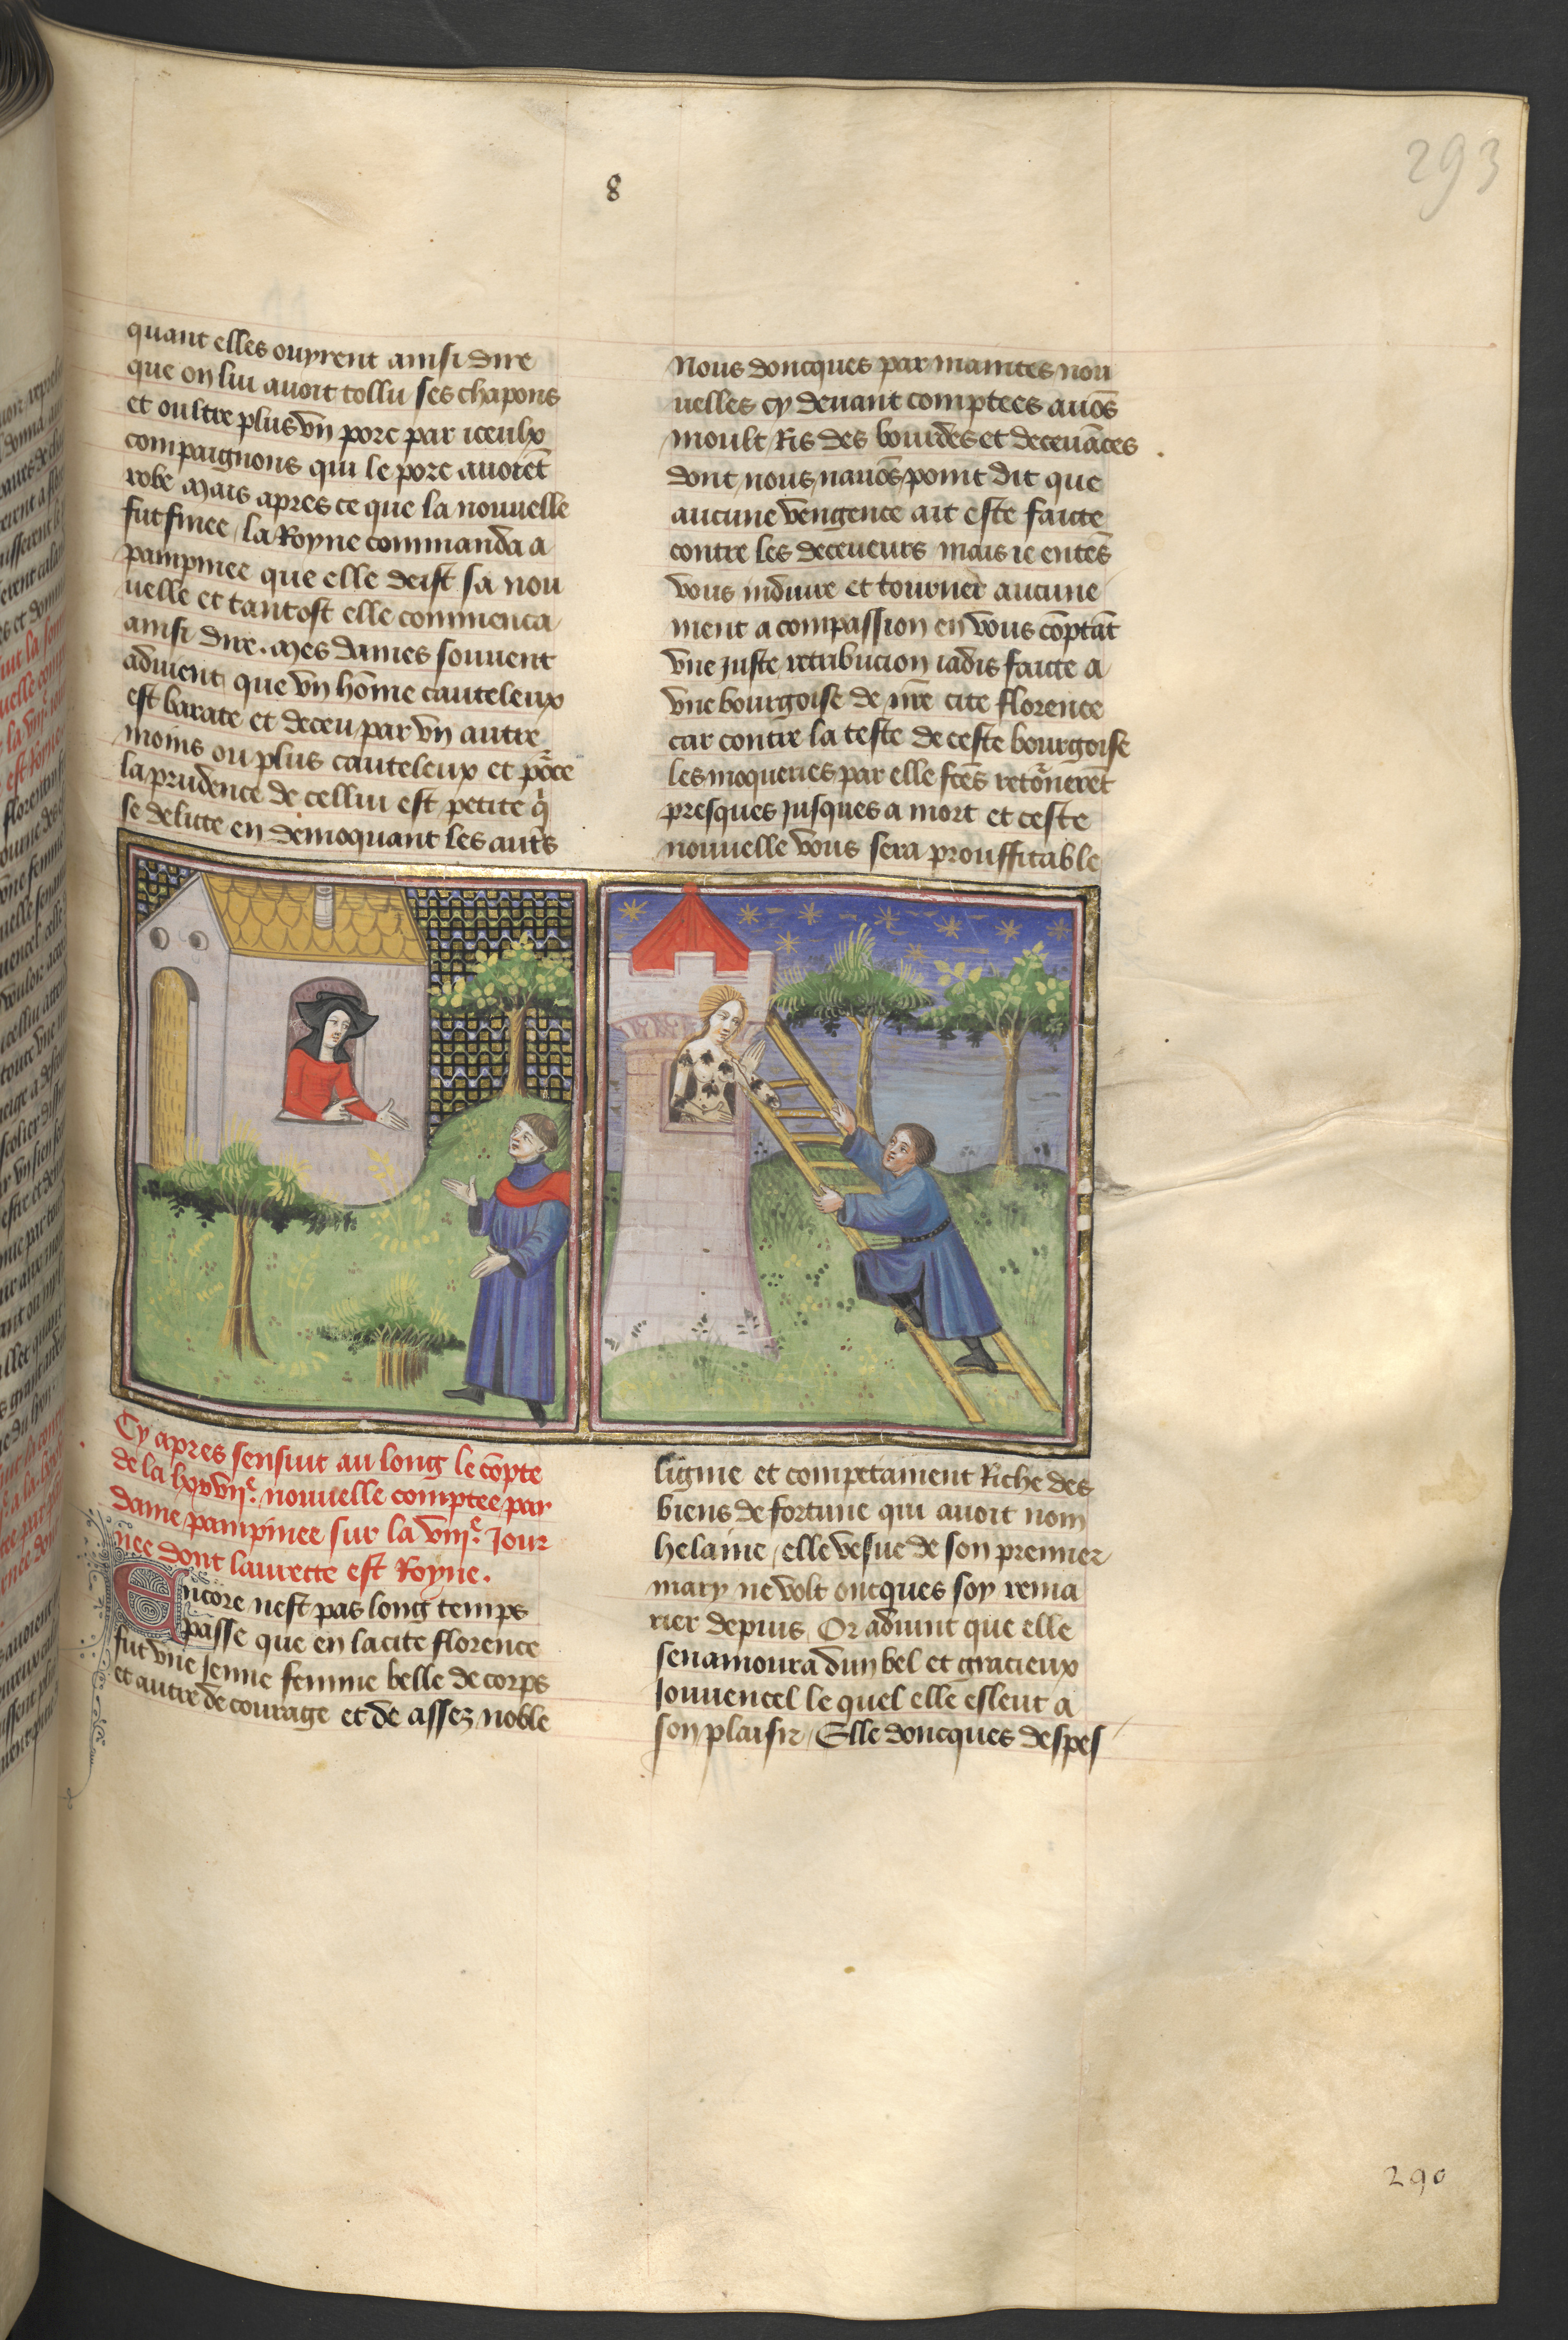 293
8
quant elles ouyrent ainsi dire
que on lui auoit tollu ses chapons
et oultre plus vn porc par iceulx
compaignons qui le porc auoiẽt
robe Mais apres ce que la nouuelle
fut finee / la Royne commanda a
pampinee que elle deist sa nou
uelle et tantost elle commenca
ainsi dire. Mes dames souuent
aduient que vn hõme cauteleux
est barate et deceu par vn autre
moins ou plus cauteleux et põce
la prudence de cellui est petite q̃
se delitte en demoquant les autẽs
Nous doncques par maintes nou
uelles cy deuant comptees auõs
moult Ris des bourdes et deceuãces
dont nous nauõs point dit que
aucune vengence ait este faicte
contre les deceueurs mais ie entẽs
vous induire et tourner aucune
ment a compassion en vous cõptãt
vne juste retribucion iadis faicte a
vne bourgoise de nr̃e cite florence
car contre la teste de ceste bourgoise
les moqueries par elle fc̃es retõnerẽt
presques jusques a mort et ceste
nouuelle vous sera prouffitable
Cy apres sensuit au long le cõpte
de la lxxvijᵉ. nouuelle comptee par
dame pampinee sur la viijᵉ. Jour
nee dont laurette est Royne.
Encore nest pas long temps
passe que en la cite florence
fut vne jenne femme belle de corps
et autre de courage et de assez noble
lignie et competament Riche des
biens de fortune qui auoit nom
helaine / elle vefue de son premier
mary ne volt oncques soy rema
rier depuis Or aduint que elle
senamoura dun bel et gracieux
Jouuencel le quel elle esleut a
son plaisir / Elle doncques despes
290